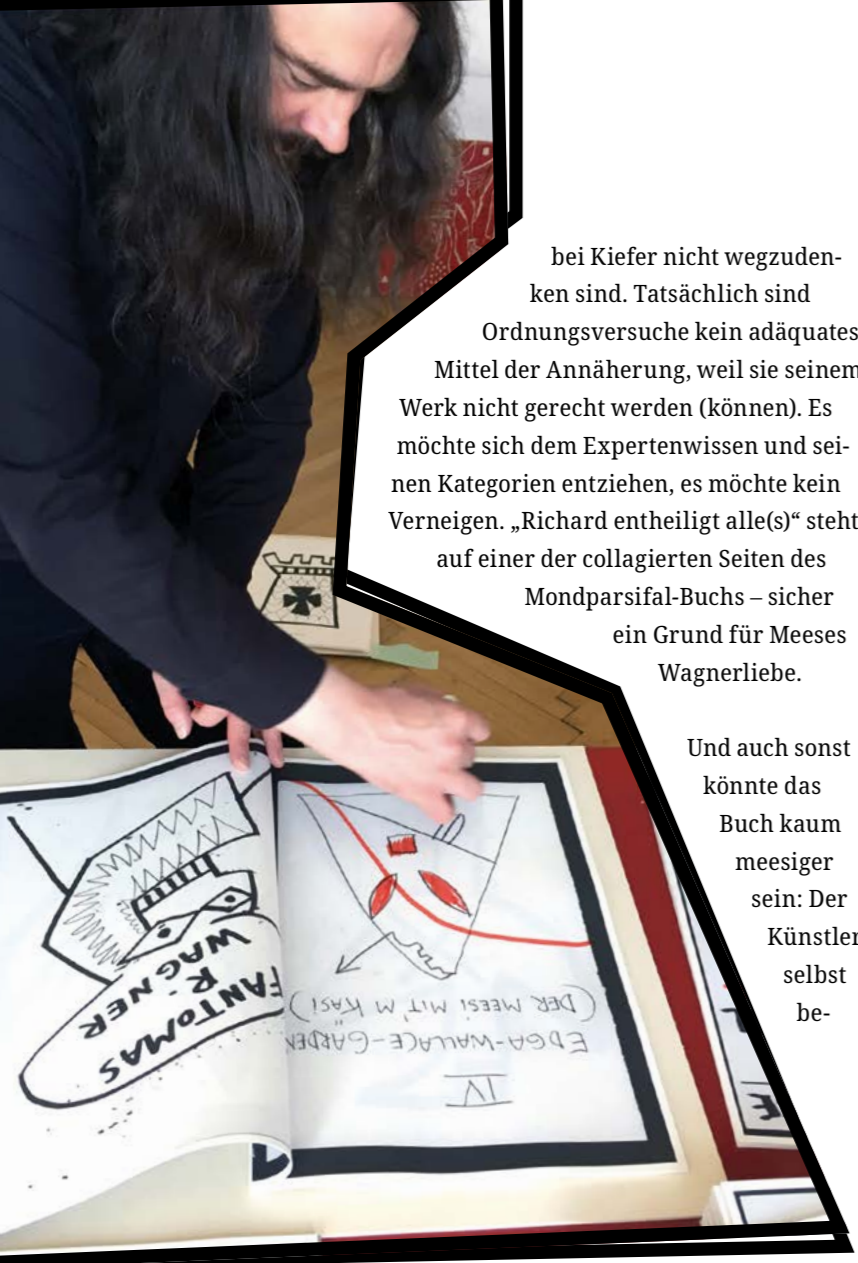 bei Kiefer nicht wegzuden-
ken sind. Tatsächlich sind
Ordnungsversuche kein adäquates
Mittel der Annäherung, weil sie seinem
Werk nicht gerecht werden (können). Es
möchte sich dem Expertenwissen und sei-
nen Kategorien entziehen, es möchte kein
Verneigen. „Richard entheiligt alle(s)“ steht
auf einer der collagierten Seiten des
Mondparsifal-Buchs – sicher
ein Grund für Meeses
Wagnerliebe.
Und auch sonst
könnte das
Buch kaum
meesiger
sein: Der
Künstler
selbst
be-
FANTOMAS
R.
WAGNER
IV
EDGA-WALLACE-GÄRDEN
(DER MEESI MIT'M KASI)